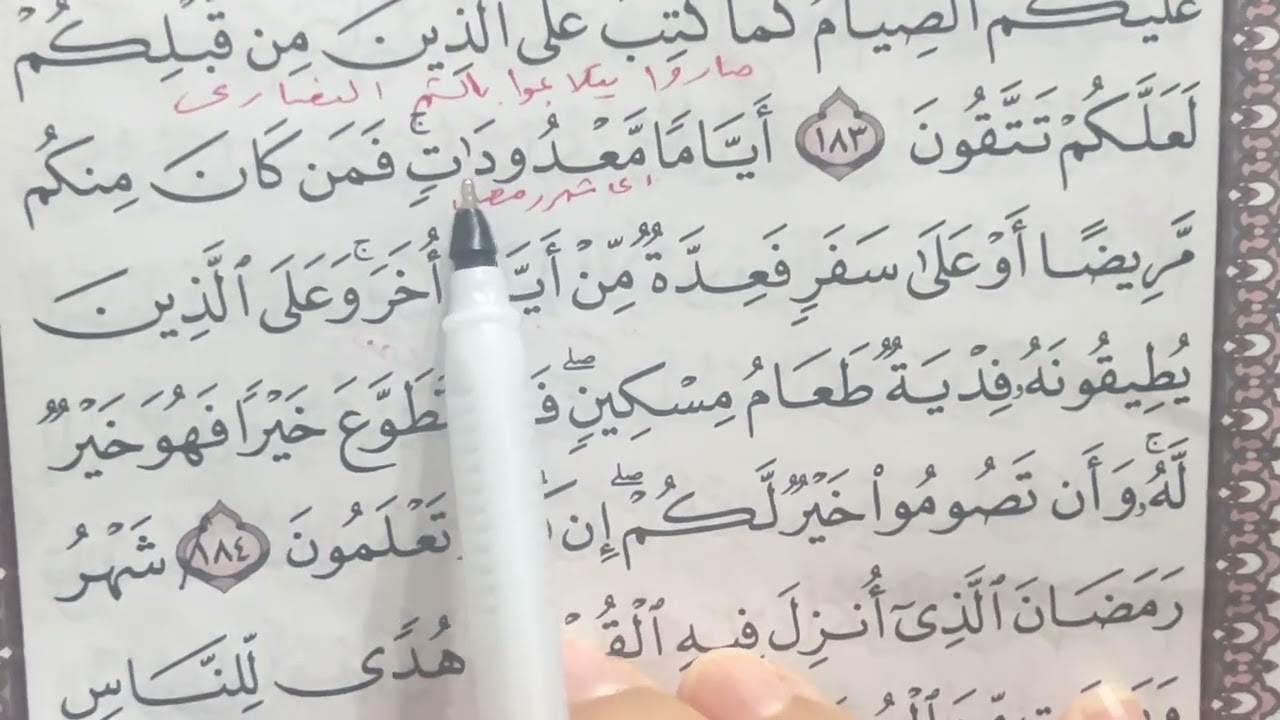 عَلَيْكُمُ ٱلصِّيَامُ كَمَا كُتِبَ عَلَى ٱلَّذِينَ مِن قَبْلِكُمْ
صاروا يتلاعبوا بالشهر النصارى
لَعَلَّكُمْ تَتَّقُونَ ١٨٣ أَيَّامًا مَّعْدُودَٰتٍ ۚ فَمَن كَانَ مِنكُم
اي شهر رمضان
مَّرِيضًا أَوْ عَلَىٰ سَفَرٍ فَعِدَّةٌ مِّنْ أَيَّ أُخَرَ ۚ وَعَلَى ٱلَّذِينَ
يُطِيقُونَهُۥ فِدْيَةٌ طَعَامُ مِسْكِينٍ ۖ فَ تَطَوَّعَ خَيْرًا فَهُوَ خَيْرٌ
لَّهُۥ ۚ وَأَن تَصُومُوا۟ خَيْرٌ لَّكُمْ ۖ إِن تَعْلَمُونَ ١٨٤ شَهْرُ
رَمَضَانَ ٱلَّذِىٓ أُنزِلَ فِيهِ ٱلْقُ هُدًى لِّلنَّاسِ